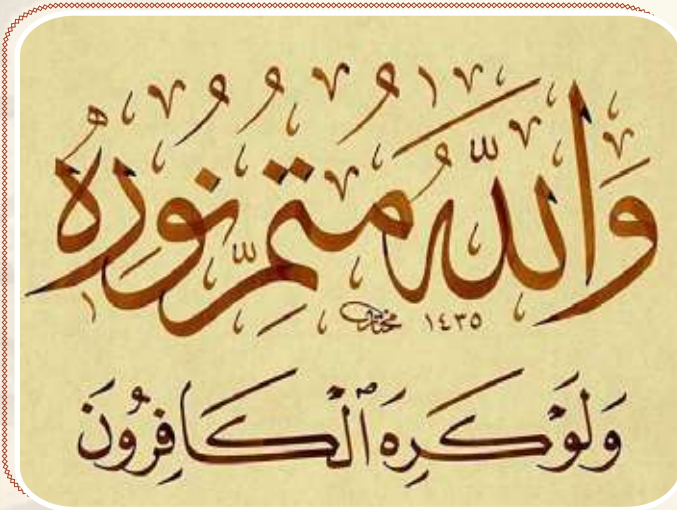 وَاللَّهُ مُتِمُّ نُورِهِ
١٤٣٥
وَلَوْ كَرِهَ ٱلْكَافِرُونَ